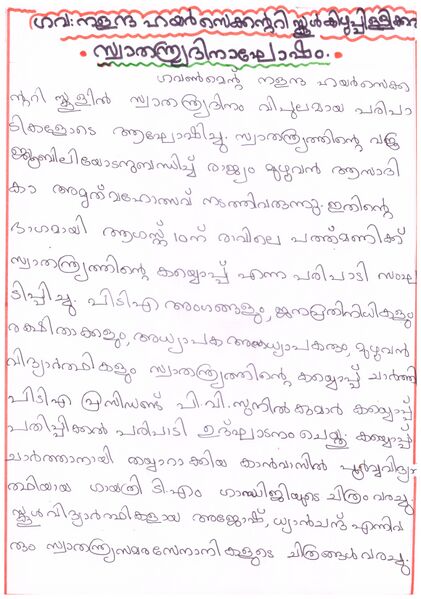 ഗവ: നളന്ദ ഹയർ സെക്കന്ററി സ്കൂൾ കിഴുപ്പിള്ളിക്കര
• സ്വാതന്ത്ര്യദിനാഘോഷം.
ഗവൺമെന്റ് നളന്ദ ഹയർസെക്ക
ന്ററി സ്കൂളിൽ സ്വാതന്ത്ര്യദിനം വിപുലമായ പരിപാ
ടികളോടെ ആഘോഷിച്ചു. സ്വാതന്ത്ര്യത്തിന്റെ വജ്ര
ജൂബിലിയോടനുബന്ധിച്ച് രാജ്യം മുഴുവൻ ആസാദി
കാ അമൃത് മഹോത്സവ് നടത്തിവരുന്നു. ഇതിന്റെ
ഭാഗമായി ആഗസ്റ്റ് 10ന് രാവിലെ പത്ത്മണിക്ക്
സ്വാതന്ത്ര്യത്തിന്റെ കയ്യൊപ്പ് എന്ന പരിപാടി സംഘ
ടിപ്പിച്ചു. പിടിഎ അംഗങ്ങളും, ജനപ്രതിനിധികളും
രക്ഷിതാക്കളും, അധ്യാപക അനധ്യാപകരും, മുഴുവൻ
വിദ്യാർത്ഥികളും സ്വാതന്ത്ര്യത്തിന്റെ കയ്യൊപ്പ് ചാർത്തി
പിടിഎ പ്രസിഡണ്ട് പി.വി.സുനിൽകുമാർ കയ്യൊപ്പ്
പതിപ്പിക്കൽ പരിപാടി ഉദ്ഘാടനം ചെയ്തു. കയ്യൊപ്പ്
ചാർത്താനായി തയ്യാറാക്കിയ കാൻവാസിൽ പൂർവ്വവിദ്യാർ
ത്ഥിയായ ഗായത്രി ടി.എം ഗാന്ധിജിയുടെ ചിത്രം വരച്ചു.
സ്കൂൾ വിദ്യാർത്ഥികളായ അജോഷ്, ധ്യാൻചന്ദ് എന്നിവ
രും സ്വാതന്ത്ര്യസമരസേനാനികളുടെ ചിത്രങ്ങൾ വരച്ചു.